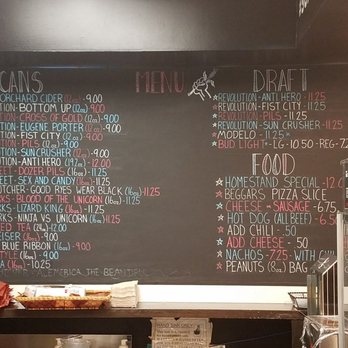 CANS
ORCHARD CIDER (12oz) - 9.00
TION - BOTTOM UP (12oz) - 9.00
TION - CROSS OF GOLD (12oz) - 9.00
TION - EUGENE PORTER (12oz) - 9.00
TION - FIST CITY (12oz) - 9.00
TION - PILS (12oz) - 9.00
TION - SUN CRUSHER (12oz) - 9.00
TION - ANTI HERO (19.2oz) - 12.00
EET - DOZER PILS (16oz) - 11.25
EET - SEX AND CANDY (16oz) - 11.25
TCHER - GOOD RYES WEAR BLACK (16oz) - 11.25
RKS - BLOOD OF THE UNICORN (16oz) - 11.25
RKS - LIZARD KING (16oz) - 11.25
RKS - NINJA VS UNICORN (16oz) - 11.25
TED TEA (24oz) - 12.00
EISER (16oz) - 9.00
BLUE RIBBON (16oz) - 9.00
STYLE (16oz) - 9.00
- 10.25
AMERICA THE BEAUTIFUL
MENU
DRAFT
REVOLUTION - ANTI HERO - 11.25
REVOLUTION - FIST CITY - 11.25
REVOLUTION - PILS - 11.25
REVOLUTION - SUN CRUSHER - 11.25
MODELO - 11.25
BUD LIGHT - LG - 10.50 REG - 7.2
FOOD
HOMESTAND SPECIAL - 12.0
BEGGARS PIZZA SLICE
CHEESE - SAUSAGE - 6.75
HOT DOG (ALL BEEF) - 6.50
ADD CHILI - .50
ADD CHEESE - .50
NACHOS - 7.25 - WITH
PEANUTS (8oz) BAG